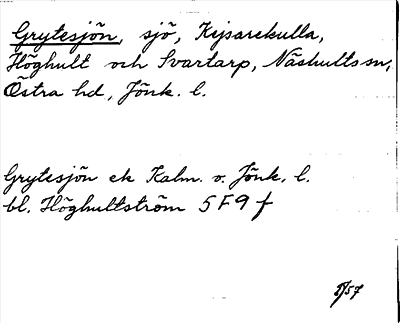 Grytesjön, sjö, Kejsarekulla,
Höghult och Svartarp, Näshults sn,
Östra hd, Jönk. l.
Grytesjön ek Kalm. o. Jönk. l.
bl. Höghultström 5F9f
/57